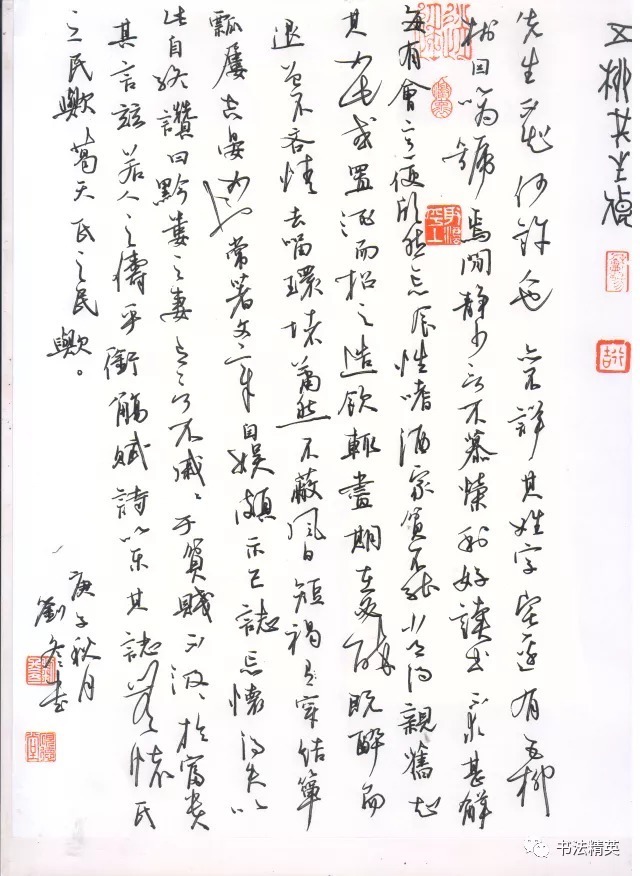 五柳先生傳
先生不知何許人也亦不詳其姓字宅邊有五柳
樹因以為號焉閒靜少言不慕榮利好讀書不求甚解
每有會意便欣然忘食性嗜酒家貧不能常得親舊知
其如此或置酒而招之造飲輒盡期在必醉既醉而
退曾不吝情去留環堵蕭然不蔽風日短褐穿結簞
瓢屢空晏如也常著文章自娛頗示己誌忘懷得失以
此自終讚曰黔婁之妻有言不戚戚于貧賤不汲汲於富貴
其言茲若人之儔乎銜觴賦詩以樂其誌無懷氏
之民歟葛天氏之民歟。
庚子秋月
劉書
书法精英